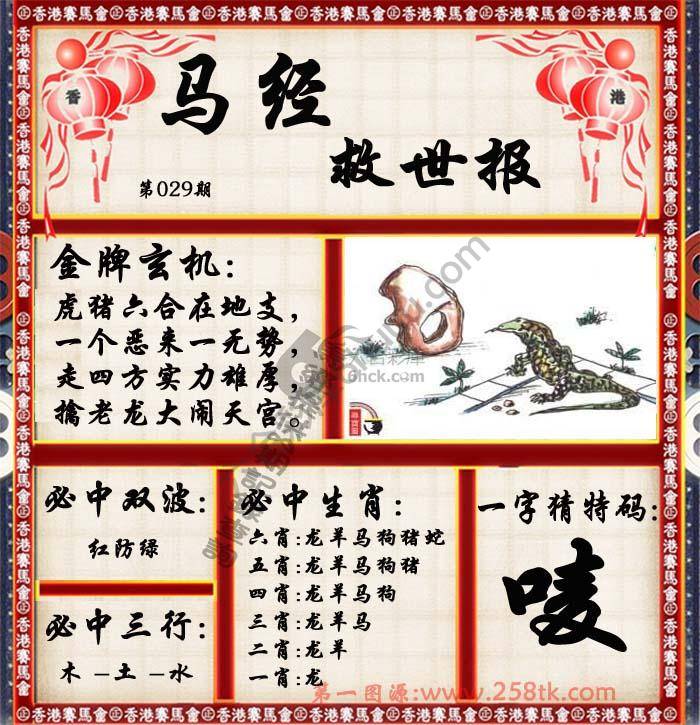 香港賽馬會
香
港
马经
救世报
第029期
金牌玄机:
虎猪六合在地支，
一个恶来一无势，
走四方实力雄厚，
擒老龙大闹天宫。
必中双波:
红防绿
必中三行:
木–土–水
必中生肖:
六肖:龙羊马狗猪蛇
五肖:龙羊马狗猪
四肖:龙羊马狗
三肖:龙羊马
二肖:龙羊
一肖:龙
一字猜特码:
唛
第一图源:www.258tk.com